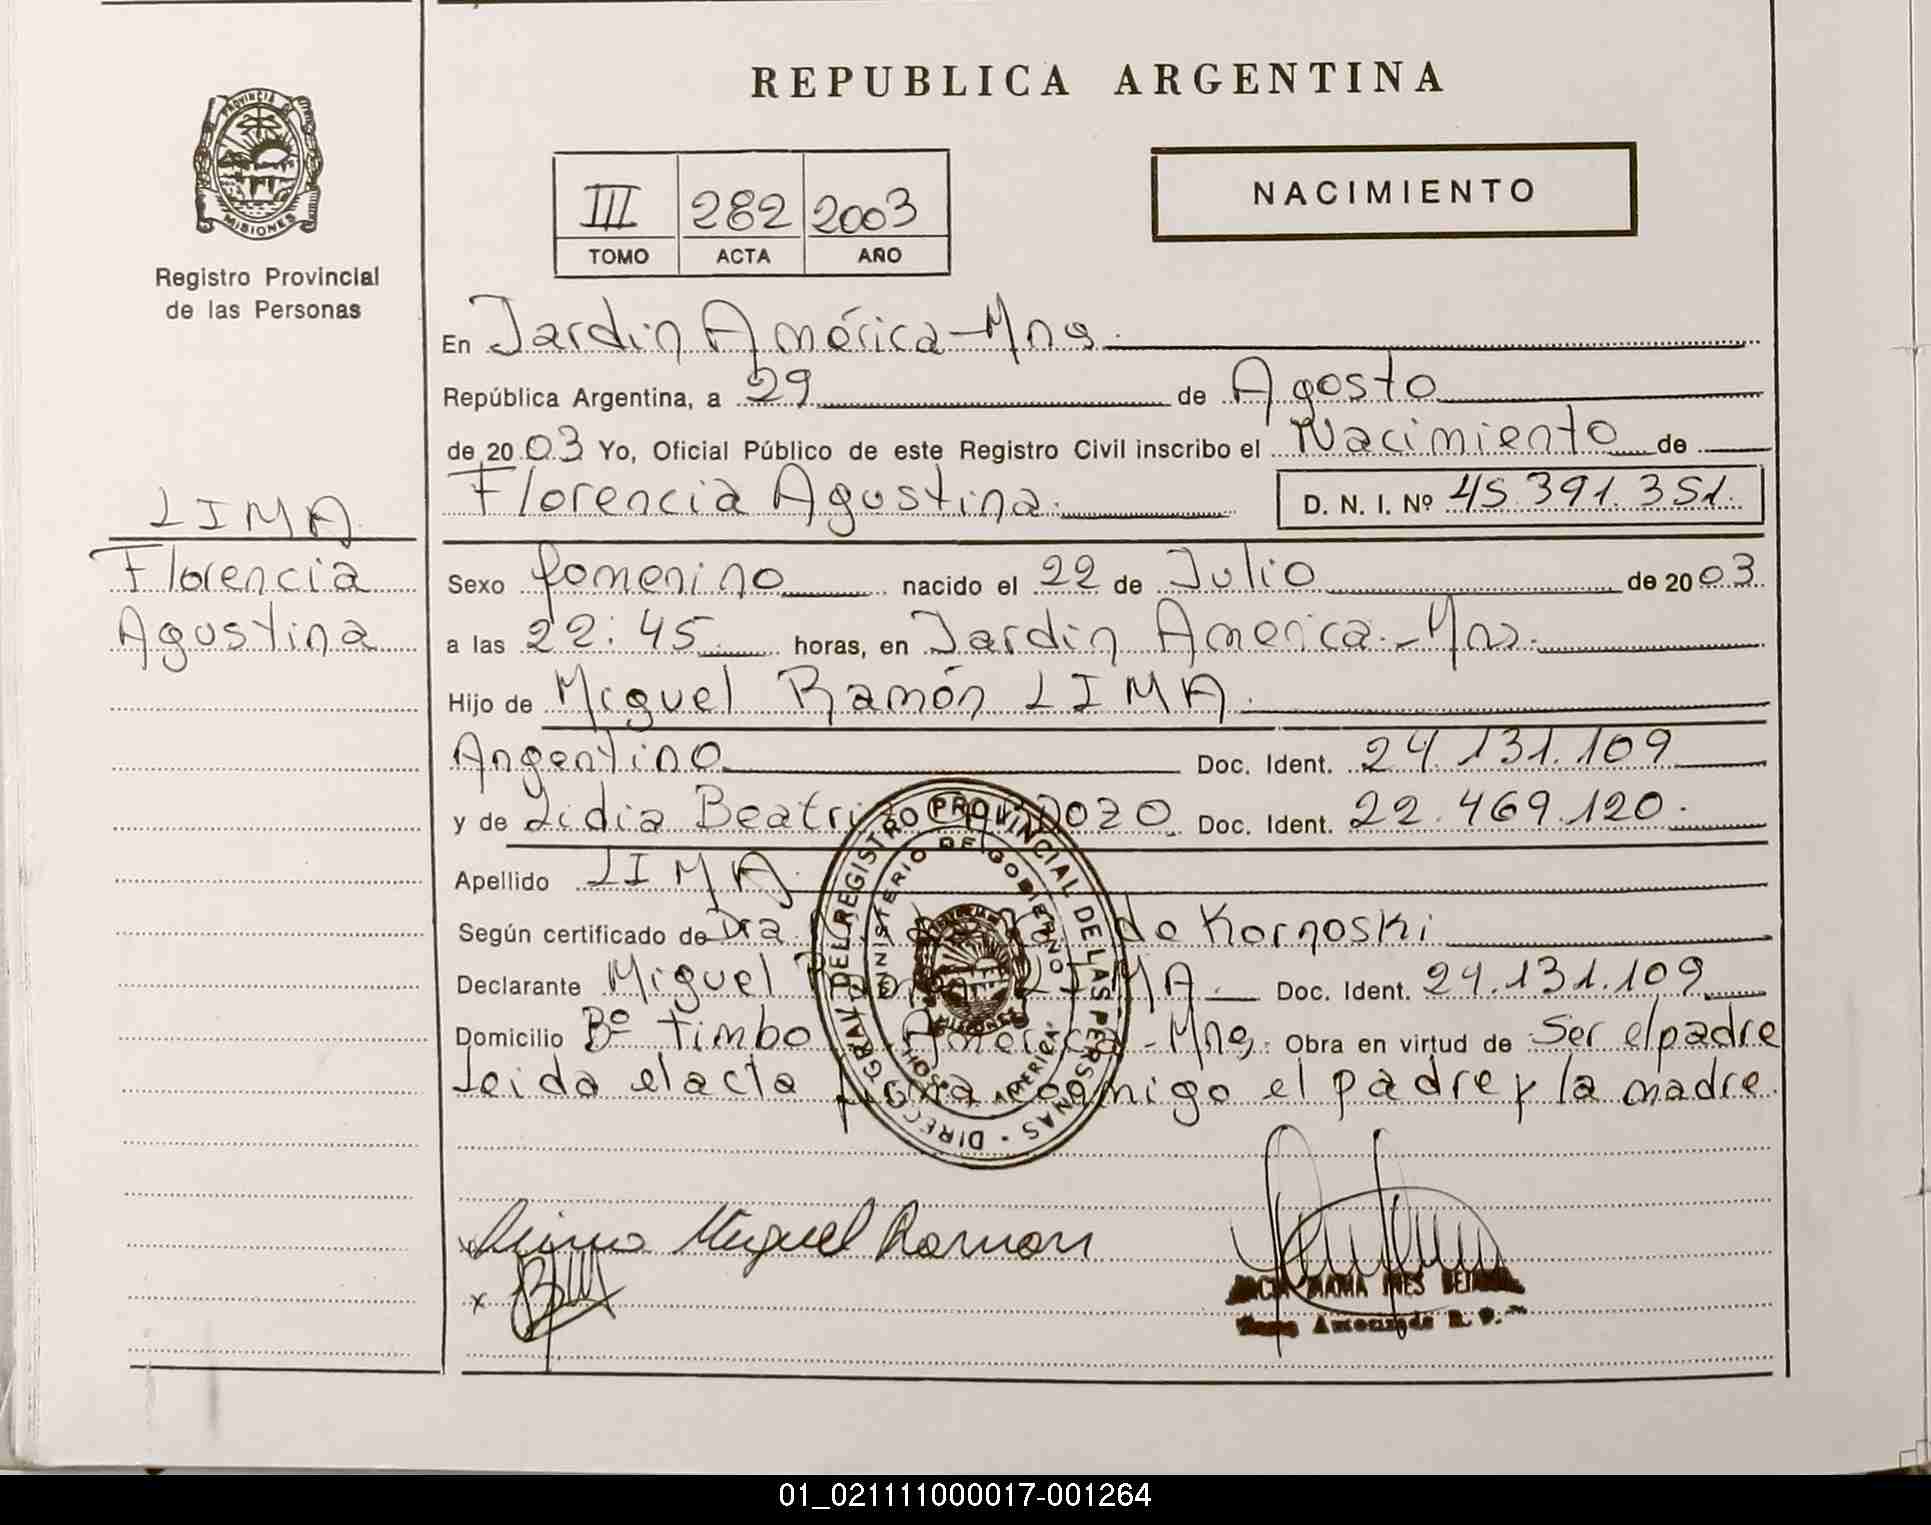 REPUBLICA ARGENTINA
PROVINCIA DE
MISIONES
Registro Provincial
de las Personas
III 282 2003
TOMO ACTA AÑO
NACIMIENTO
En Jardín América - Mns.
República Argentina, a 29 de Agosto
de 2003 Yo, Oficial Público de este Registro Civil inscribo el Nacimiento de
Florencia Agustina. D. N. I. Nº 45.391.351.
LIMA
Florencia
Agustina
Sexo femenino nacido el 22 de Julio de 2003
a las 22:45 horas, en Jardín America - Mns.
Hijo de Miguel Ramón LIMA.
Argentino Doc. Ident. 24.131.109
y de Lidia Beatri DOZO Doc. Ident. 22.469.120.
Apellido LIMA.
Según certificado de Dra. de Kornoski
Declarante Miguel LIMA. Doc. Ident. 24.131.109
Domicilio Bº timbo América - Mns. Obra en virtud de Ser el padre
Leida el acta firma conmigo el padre y la madre.
DIRECC. GRAL. DEL REGISTRO PROVINCIAL DE LAS PERSONAS
MINISTERIO DE GOBIERNO
AMERICA
MISIONES
Lima Miguel Ramon
x
MARIA INES
Autorizada R. P.
01_021111000017-001264